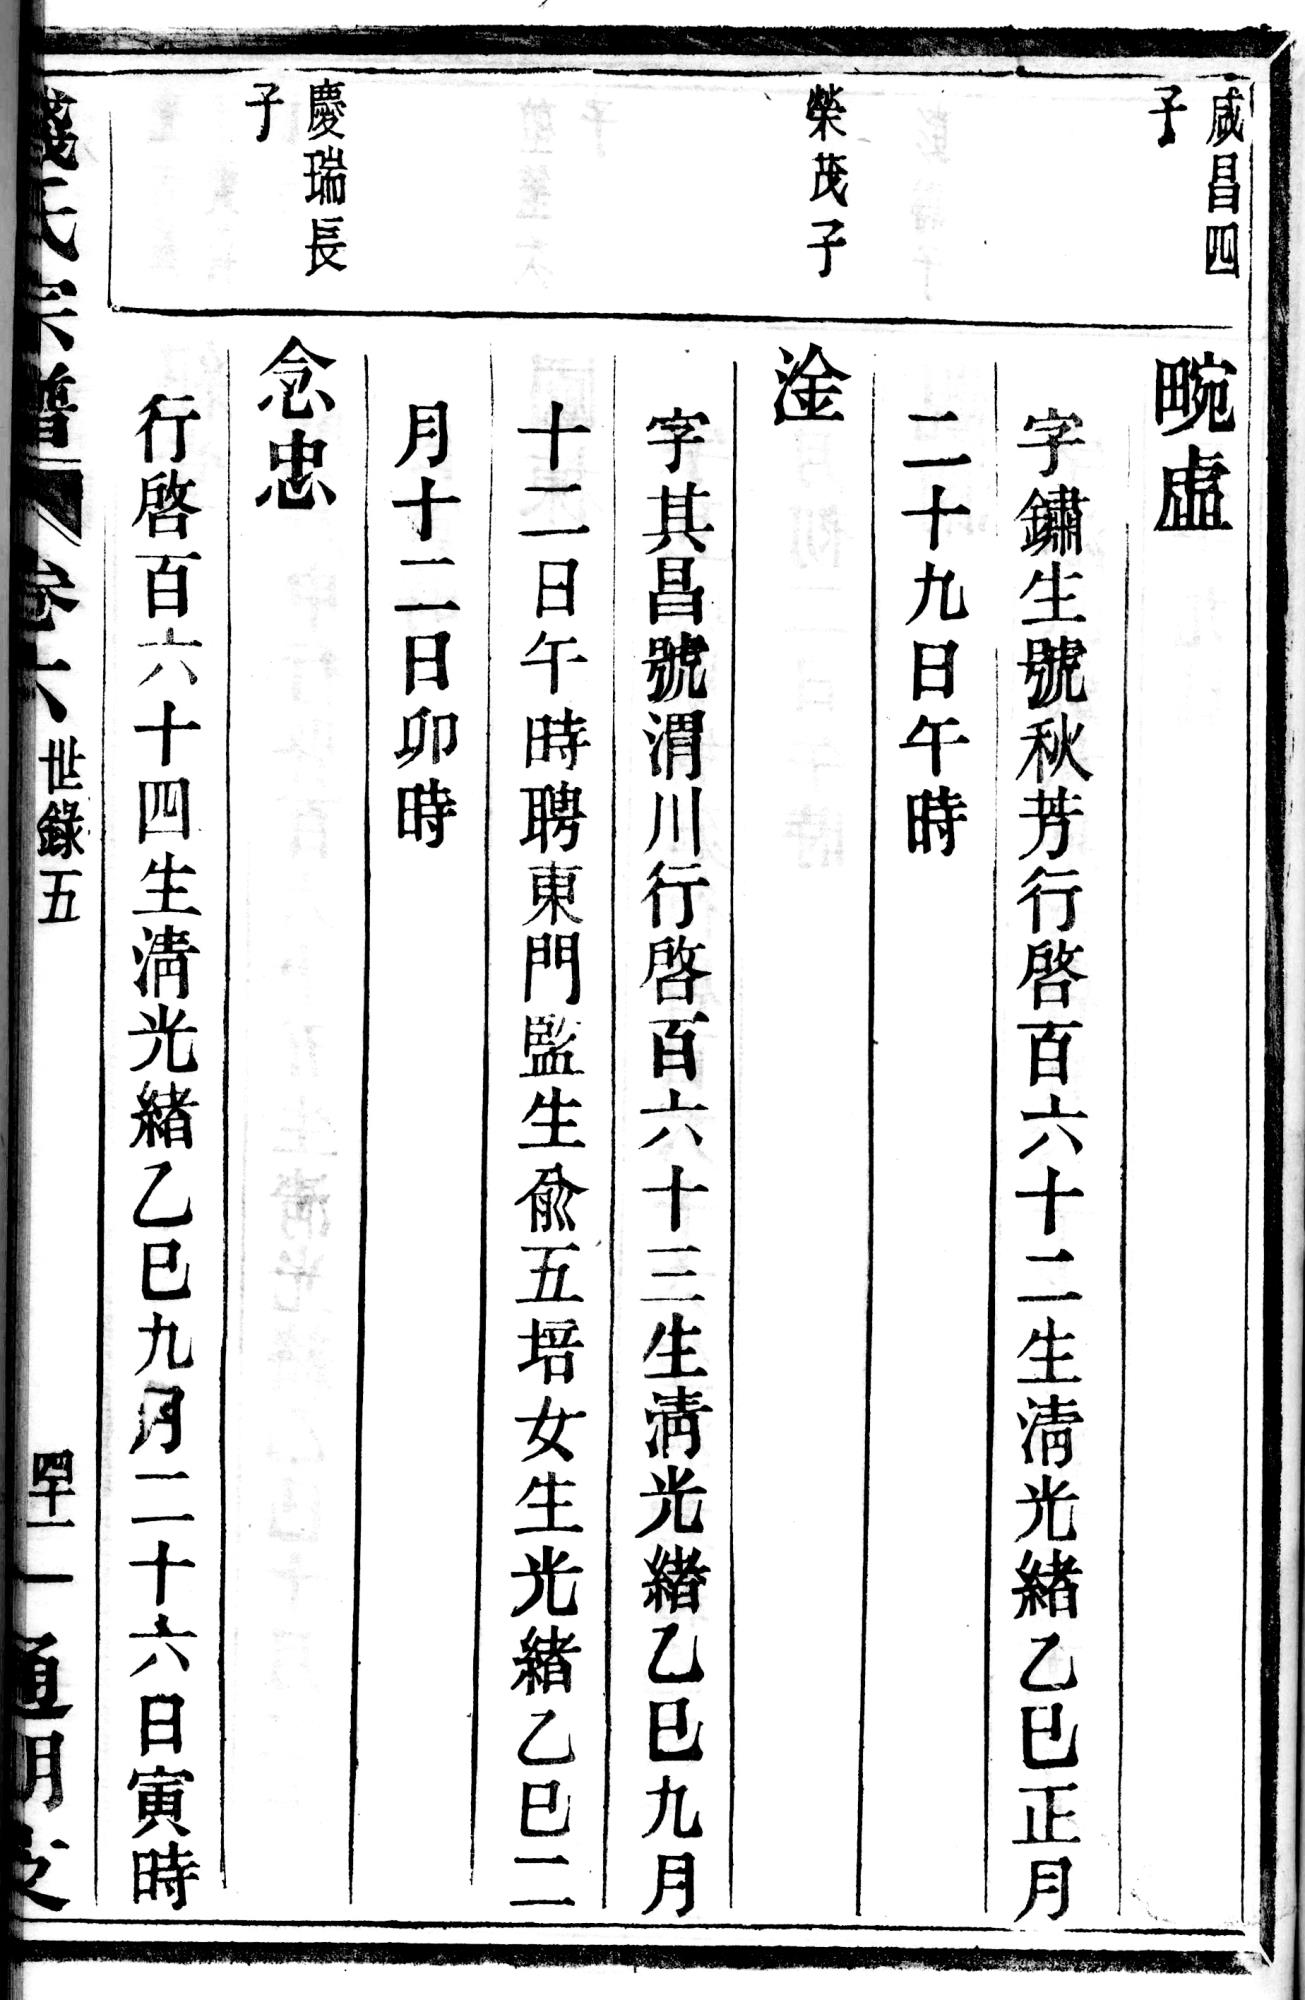 咸昌四
子
畹虛
字鏽生號秋芳行啓百六十二生淸光緒乙巳正月
二十九日午時
榮茂子
淦
字其昌號渭川行啓百六十三生淸光緒乙巳九月
十二日午時聘東門監生俞五培女生光緒乙巳二
月十二日卯時
慶瑞長
子
念忠
行啓百六十四生淸光緒乙巳九月二十六日寅時
氏宗譜 卷六 世錄五 四十一